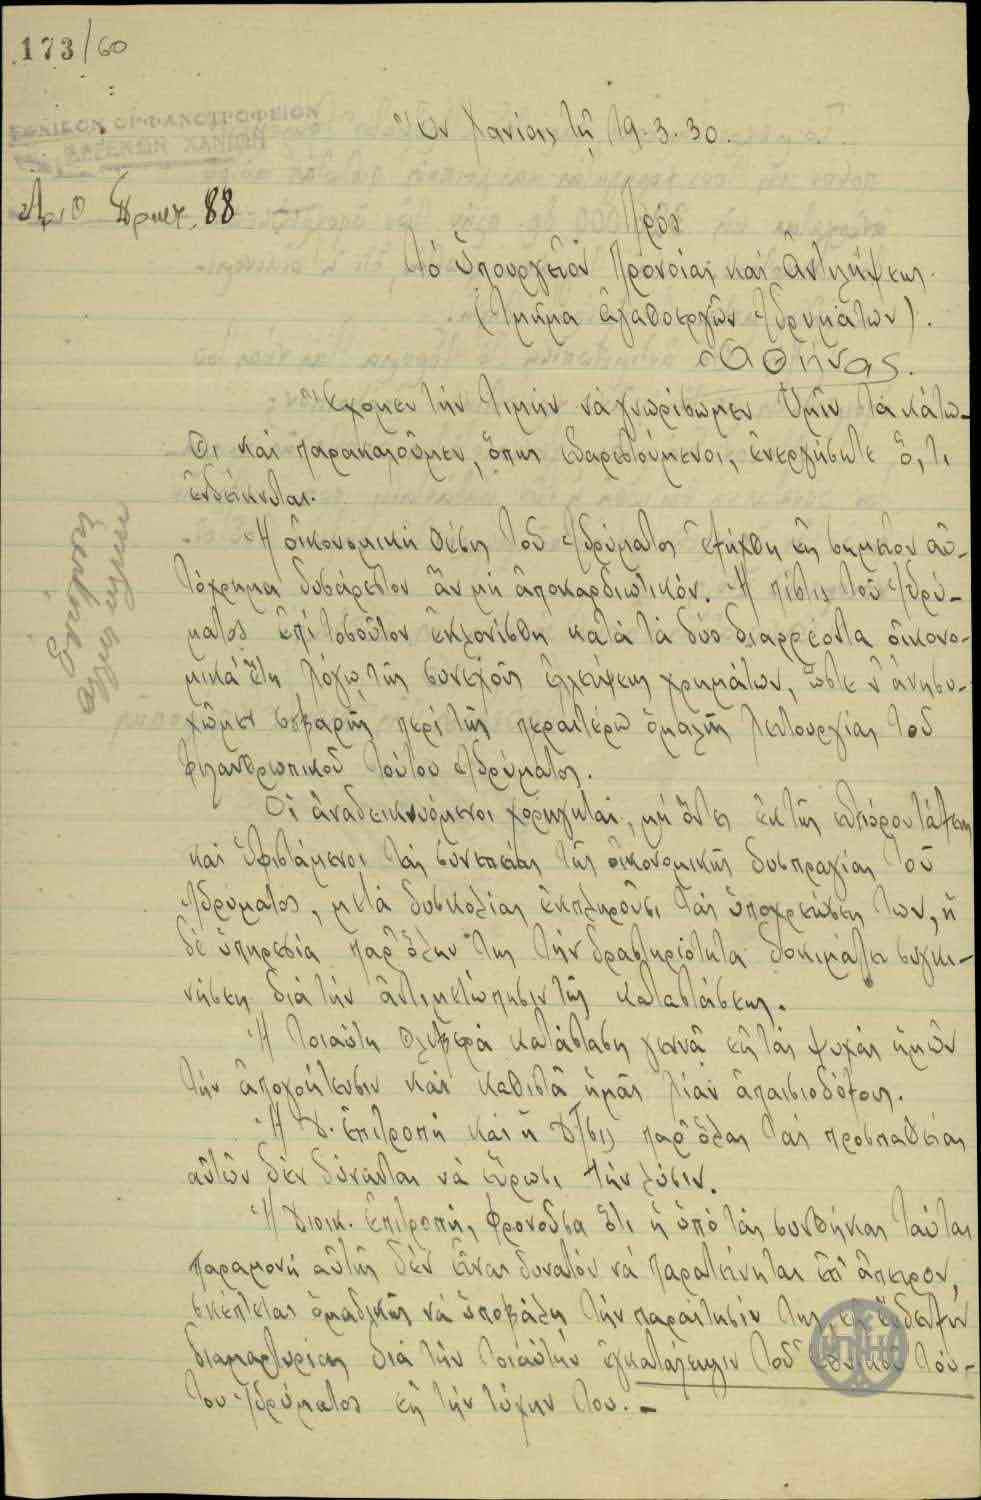 173/60
ΕΘΝΙΚΟΝ ΟΡΦΑΝΟΤΡΟΦΕΙΟΝ
ΑΡΡΕΝΩΝ ΧΑΝΙΩΝ
Ἀριθ. Πρωτ. 88
Ἐν Χανίοις τῇ 19.3.30.
Πρός
Τό Ὑπουργεῖον Προνοίας καί Ἀντιλήψεως.
(Τμῆμα Ἀγαθοεργῶν Ἱδρυμάτων).
Ἀθήνας.
Ἔχομεν τήν τιμήν νά γνωρίσωμεν Ὑμῖν τά κάτω-
θι καί παρακαλοῦμεν, ὅπως εὐαρεστούμενοι, ἐνεργήσωτε ὅ,τι
ἐνδείκνυται.
Ἡ οἰκονομική θέσις τοῦ Ἱδρύματος ἐτήχθη εἰς σημεῖον αὐ-
τόχρημα δυσάρεστον ἄν μή ἀποκαρδιωτικόν. Ἡ πίστις τοῦ Ἱδρύ-
ματος ἐπί τοσοῦτον ἐκλονίσθη κατά τά δύο διαρρέοντα οἰκονο-
μικά ἔτη λόγῳ τῆς συνεχοῦς ἐλλείψεως χρημάτων, ὥστε ν' ἀνησυ-
χῶμεν σοβαρῶς περί τῆς περαιτέρω ὁμαλῆς λειτουργίας τοῦ
φιλανθρωπικοῦ τούτου Ἱδρύματος.
Οἱ ἀναδεικνυόμενοι χορηγηταί, μή ὄντες ἐκ τῆς εὐπόρου τάξεως
καί ὑφιστάμενοι τάς συνεπείας τῆς οἰκονομικῆς δυσπραγίας τοῦ
Ἱδρύματος, μετά δυσκολίας ἐκπληροῦσι τάς ὑποχρεώσεις των, ἡ
δέ ὑπηρεσία παρ' ὅλην της τήν δραστηριότητα δοκιμάζει συγκι-
νήσεις διά τήν ἀντιμετώπησιν τῆς καταστάσεως.
Ἡ τοιαύτη θλιβερά κατάστασις γεννᾷ εἰς τάς ψυχάς ἡμῶν
τήν ἀπογοήτευσιν καί καθιστᾷ ἡμᾶς λίαν ἀπαισιοδόξους.
Ἡ Δ. Ἐπιτροπή καί ἡ Δ/σις παρ' ὅλας τάς προσπαθείας
αὐτῶν δέν δύνανται νά εὕρωσι τήν λύσιν.
Ἡ Διοικ. Ἐπιτροπή, φρονοῦσα ὅτι ἡ ὑπό τάς συνθήκας ταύτας
παραμονή αὐτῆς δέν εἶναι δυνατόν νά παρατείνηται ἐπ' ἄπειρον,
σκέπτεται ὁμαδικῶς νά ὑποβάλῃ τήν παραίτησίν της, εἰς ἔνδειξιν
διαμαρτυρίας διά τήν τοιαύτην ἐγκατάλειψιν τοῦ ἐθνικοῦ τού-
του Ἱδρύματος εἰς τήν τύχην του. –